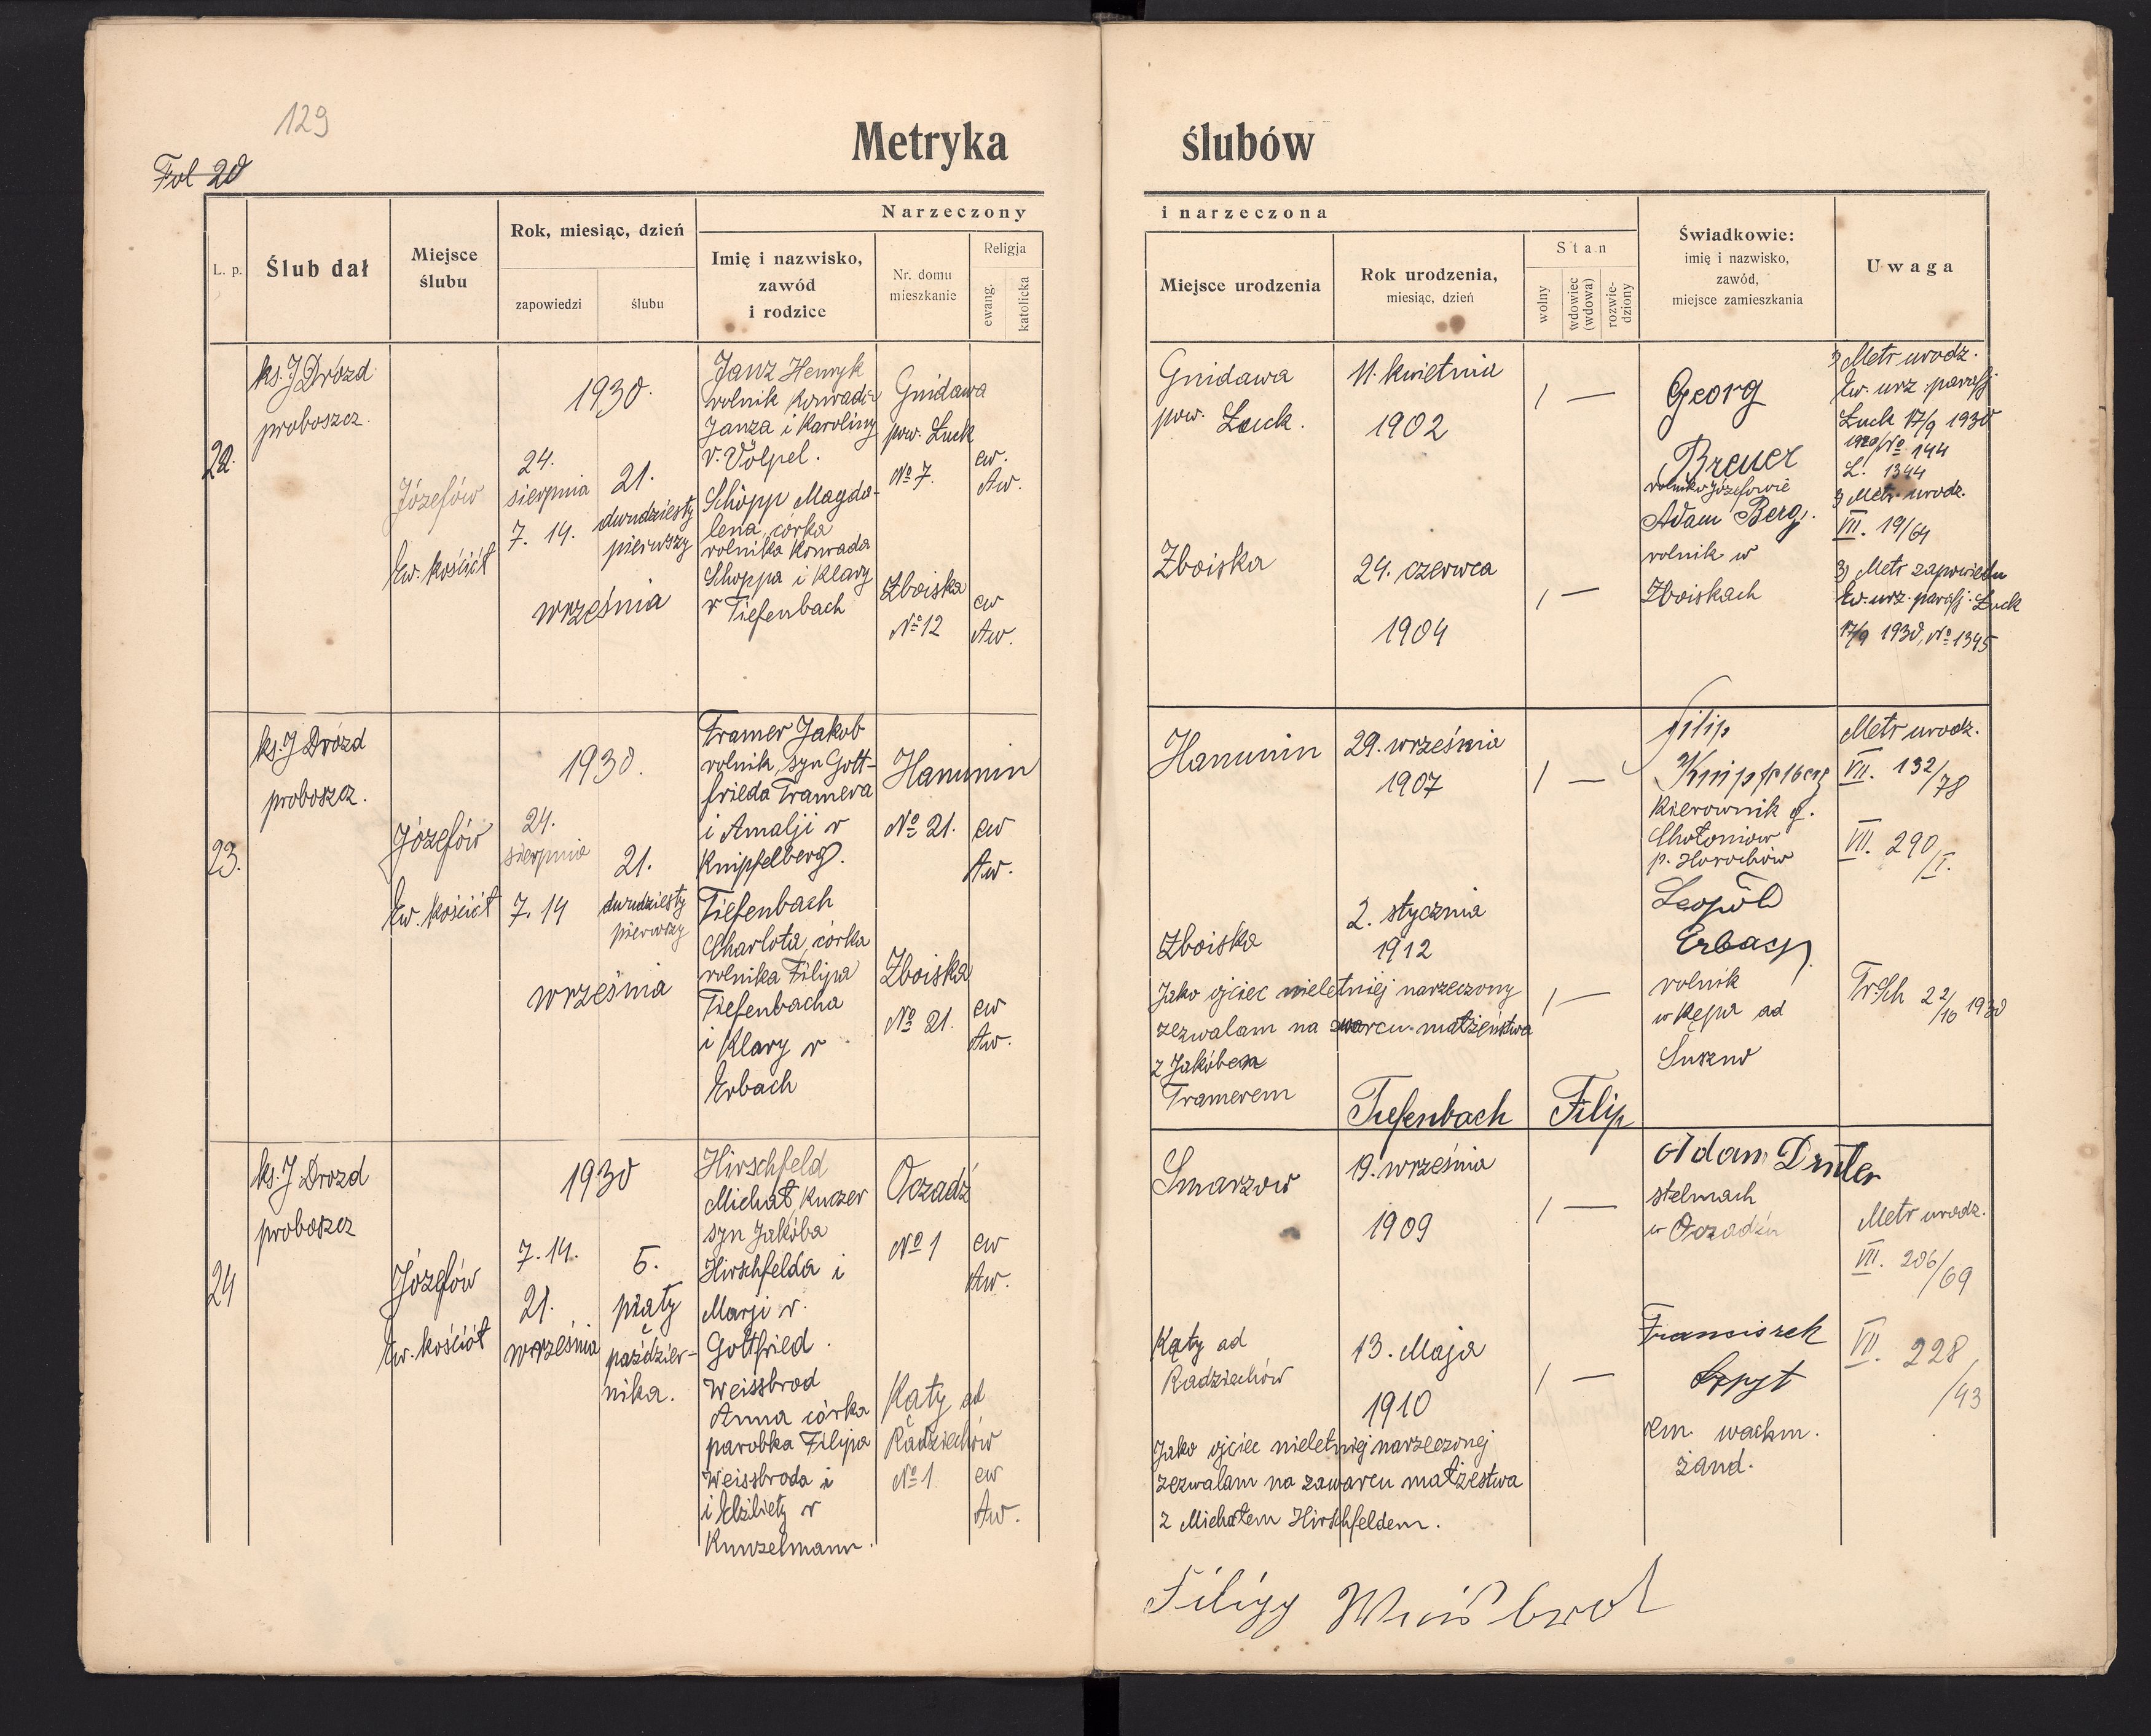 129
Fol 20
Metryka ślubów
L. p.
Ślub dał
Miejsce
ślubu
Rok, miesiąc, dzień
zapowiedzi
ślubu
Narzeczony
Imię i nazwisko,
zawód
i rodzice
Nr. domu
mieszkanie
Religja
ewang.
katolicka
i narzeczona
Miejsce urodzenia
Rok urodzenia,
miesiąc, dzień
Stan
wolny
wdowiec
(wdowa)
rozwie-
dziony
Świadkowie:
imię i nazwisko,
zawód,
miejsce zamieszkania
Uwaga
22.
ks. J Drózd
proboszcz.
Józefów
Ew. kościół
1930.
24.
sierpnia
7. 14.
21.
dwudziesty
pierwszy
września
Janz Henryk
rolnik Konrada
Janza i Karoliny
r. Völpel.
Schöpp Magda-
lena, córka
rolnika Konrada
Schöppa i Klary
r Tiefenbach
Gnidawa
pow. Łuck
No 7.
Zboiska
No 12
ew.
Aw.
ew
Aw.
Gnidawa
pow. Łuck.
Zboiska
11. kwietnia
1902
24. czerwca
1904
1 —
1 —
Georg
Breuer
rolnik w Józefowie
Adam Berg.
rolnik w
Zboiskach
1) Metr urodz.
Ew. urz. parafj.
Łuck 17/9 1930
1920/No 144
L. 1344
2) Metr. urodz.
VII. 19/64
3) Metr zapowiedzi
Ew. urz. parafj. Łuck
17/9 1930, No 1345
23.
ks. J Drózd
proboszcz.
Józefów
Ew. kościół
1930.
24.
sierpnia
7. 14
21.
dwudziesty
pierwszy
września
Tramer Jakob
rolnik, syn Gott-
frieda Tramera
i Amalji r
Knipfelberg.
Tiefenbach
Charlota, córka
rolnika Filipa
Tiefenbacha
i Klary r
Erbach
Hanunin
No 21.
Zboiska
No 21.
ew
Aw.
ew
Aw.
Hanunin
Zboiska
29. września
1907
2. stycznia
1912
1 —
1 —
Jako ojciec nieletniej narzeczony
zezwalam na małżeństwa
z Jakóbem
Tramerem
Tiefenbach Filip
Filip
Knipfelberg
Kierownik g.
Chołoniow
p. Horochów
Leopold
Erbach
rolnik
w Kępa ad
Suszno
Metr urodz.
VII. 132/78
VII. 290/I.
Tr. Sch 22/10 1930
24
ks. J Drozd
proboszcz
Józefów
Ew. kościół
1930
7. 14.
21.
września
5.
piąty
paździer-
nika.
Hirschfeld
Michał, kuczer
syn Jakóba
Hirschfelda i
Marji r.
Gottfried.
Weissbrod
Anna córka
parobka Filipa
Weissbroda i
i Elżbiety r
Kunzelmann.
Oczadź
No 1
Kąty ad
Radziechów
No 1
ew
Aw.
ew
Aw.
Smarzow
Kąty ad
Radziechów
19. września
1909
13. Maja
1910
1 —
1 —
Jako ojciec nieletniej narzeczonej
zezwalam na zawarcu małżestwa
z Michałem Hirschfeldem.
Filipp Weisbrod
Adam
stelmach
w Oczadziu
Franciszek
em. wachm.
żand.
Metr urodz.
VII. 206/69
VII. 228/43